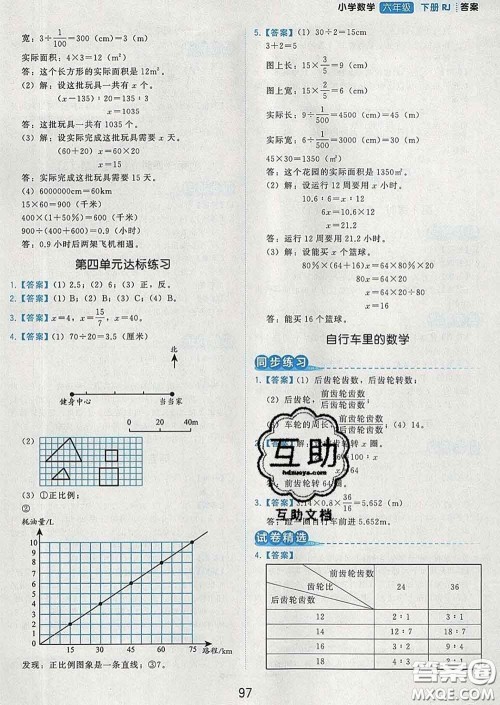 小学数学 六年级 下册 RJ 答案
宽：3÷1/100=300（cm）=3（m）
实际面积：4×3=12（m²）
答：这个长方形的实际面积是 12m²。
（2）解：设这批玩具一共有 x 个。
（x−135）：20=x：23
x=1035
答：这批玩具一共有 1035 个。
（3）解：设实际完成这批玩具需要 x 天。
（60+20）x=60×20
x=15
答：实际完成这批玩具需要 15 天。
（4）6000000cm=60km
15×60=900（千米）
400×（1+50%）=600（千米）
900÷（400+600）=0.9（小时）
答：0.9 小时后两架飞机相遇。
第四单元达标练习
1.【答案】（1）2.5；（2）6；（3）正，反。
2.【答案】（1）B；（2）B；（3）C；（4）B。
3.【答案】x=4，x=15/7，x=40。
4.【答案】（1）70÷20=3.5（厘米）
北
健身中心 当当家
（2）
（3）①正比例；
②
耗油量/L
10
9
8
7
6
5
4
3
2
1
0 15 30 45 60 75 路程/km
发现：正比例图象是一条直线；③7。
5.【答案】（1）30÷2=15cm
3+2=5
图上长：15×3/5=9（cm）
图上宽：15×2/5=6（cm）
实际长：9÷1/500=4500（cm）=45（m）
实际宽：6÷1/500=3000（cm）=30（m）
45×30=1350（m²）
答：这个花园的实际面积是 1350m²。
（2）解：设运行 12 周要用 x 小时。
10.6：6=x：12
x=10.6×12÷6
x=21.2
答：运行 12 周要用 21.2 小时。
（3）解：设能买 x 个篮球。
80%x：（64×20）=x：x
80%x=64×20
x=64×20÷80
x=16
答：能买 16 个篮球。
自行车里的数学
同步练习
1.【答案】（1）后齿轮齿数，后齿轮转数；
（2）后齿轮，前齿轮齿数/后齿轮齿数；
（3）车轮的周长，前齿轮齿数/后齿轮齿数；（4）14。
圈。
后齿轮转 64 圈。
3.【答案】3.14×0.8×36/16=5.652（m）
答：蹬一圈自行车前进 5.652m。
试卷精选
4.【答案】
前齿轮齿数 齿轮比 后齿轮齿数 24 36
12 2：1 3：1
14 12：7 18：7
16 3：2 9：4
18 4：3 2：1
互助
hdzuoye.com
互助文档
97
答案圈
MXQE.COM